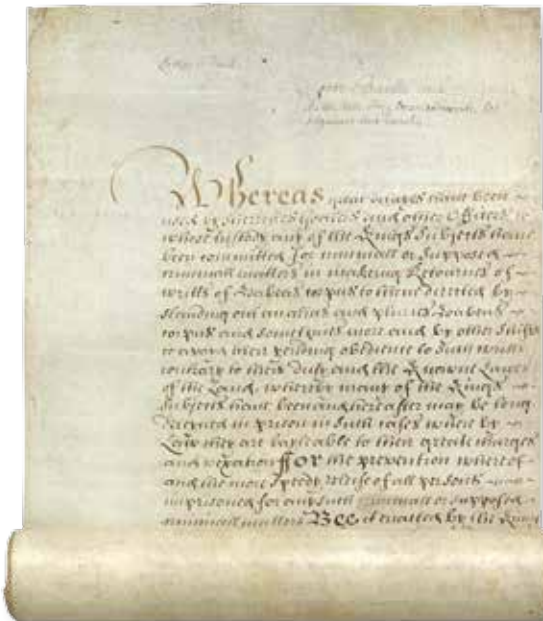 Whereas great delayes have been
used by Sheriffes Goalers and other Officers to
whose Custody any of the Kings Subjects have
been committed for criminall or supposed
criminall matters in making Retournes of
writts of Habeas Corpus to them directed by
standing out an alias and pluries Habeas
Corpus and sometymes more and by other shifts
to avoyd their yeilding obedience to such writts
contrary to their duty and the Knowne Lawes
of the Land, whereby many of the Kings
Subjects have been and hereafter may be long
detayned in prison in such cases where by
Law they are bayleable to their great charges
and vexation ffor the prevention whereof
and the more speedy releife of all persons
imprisoned for any such criminall or supposed
criminall matters Bee it enacted by the Kings